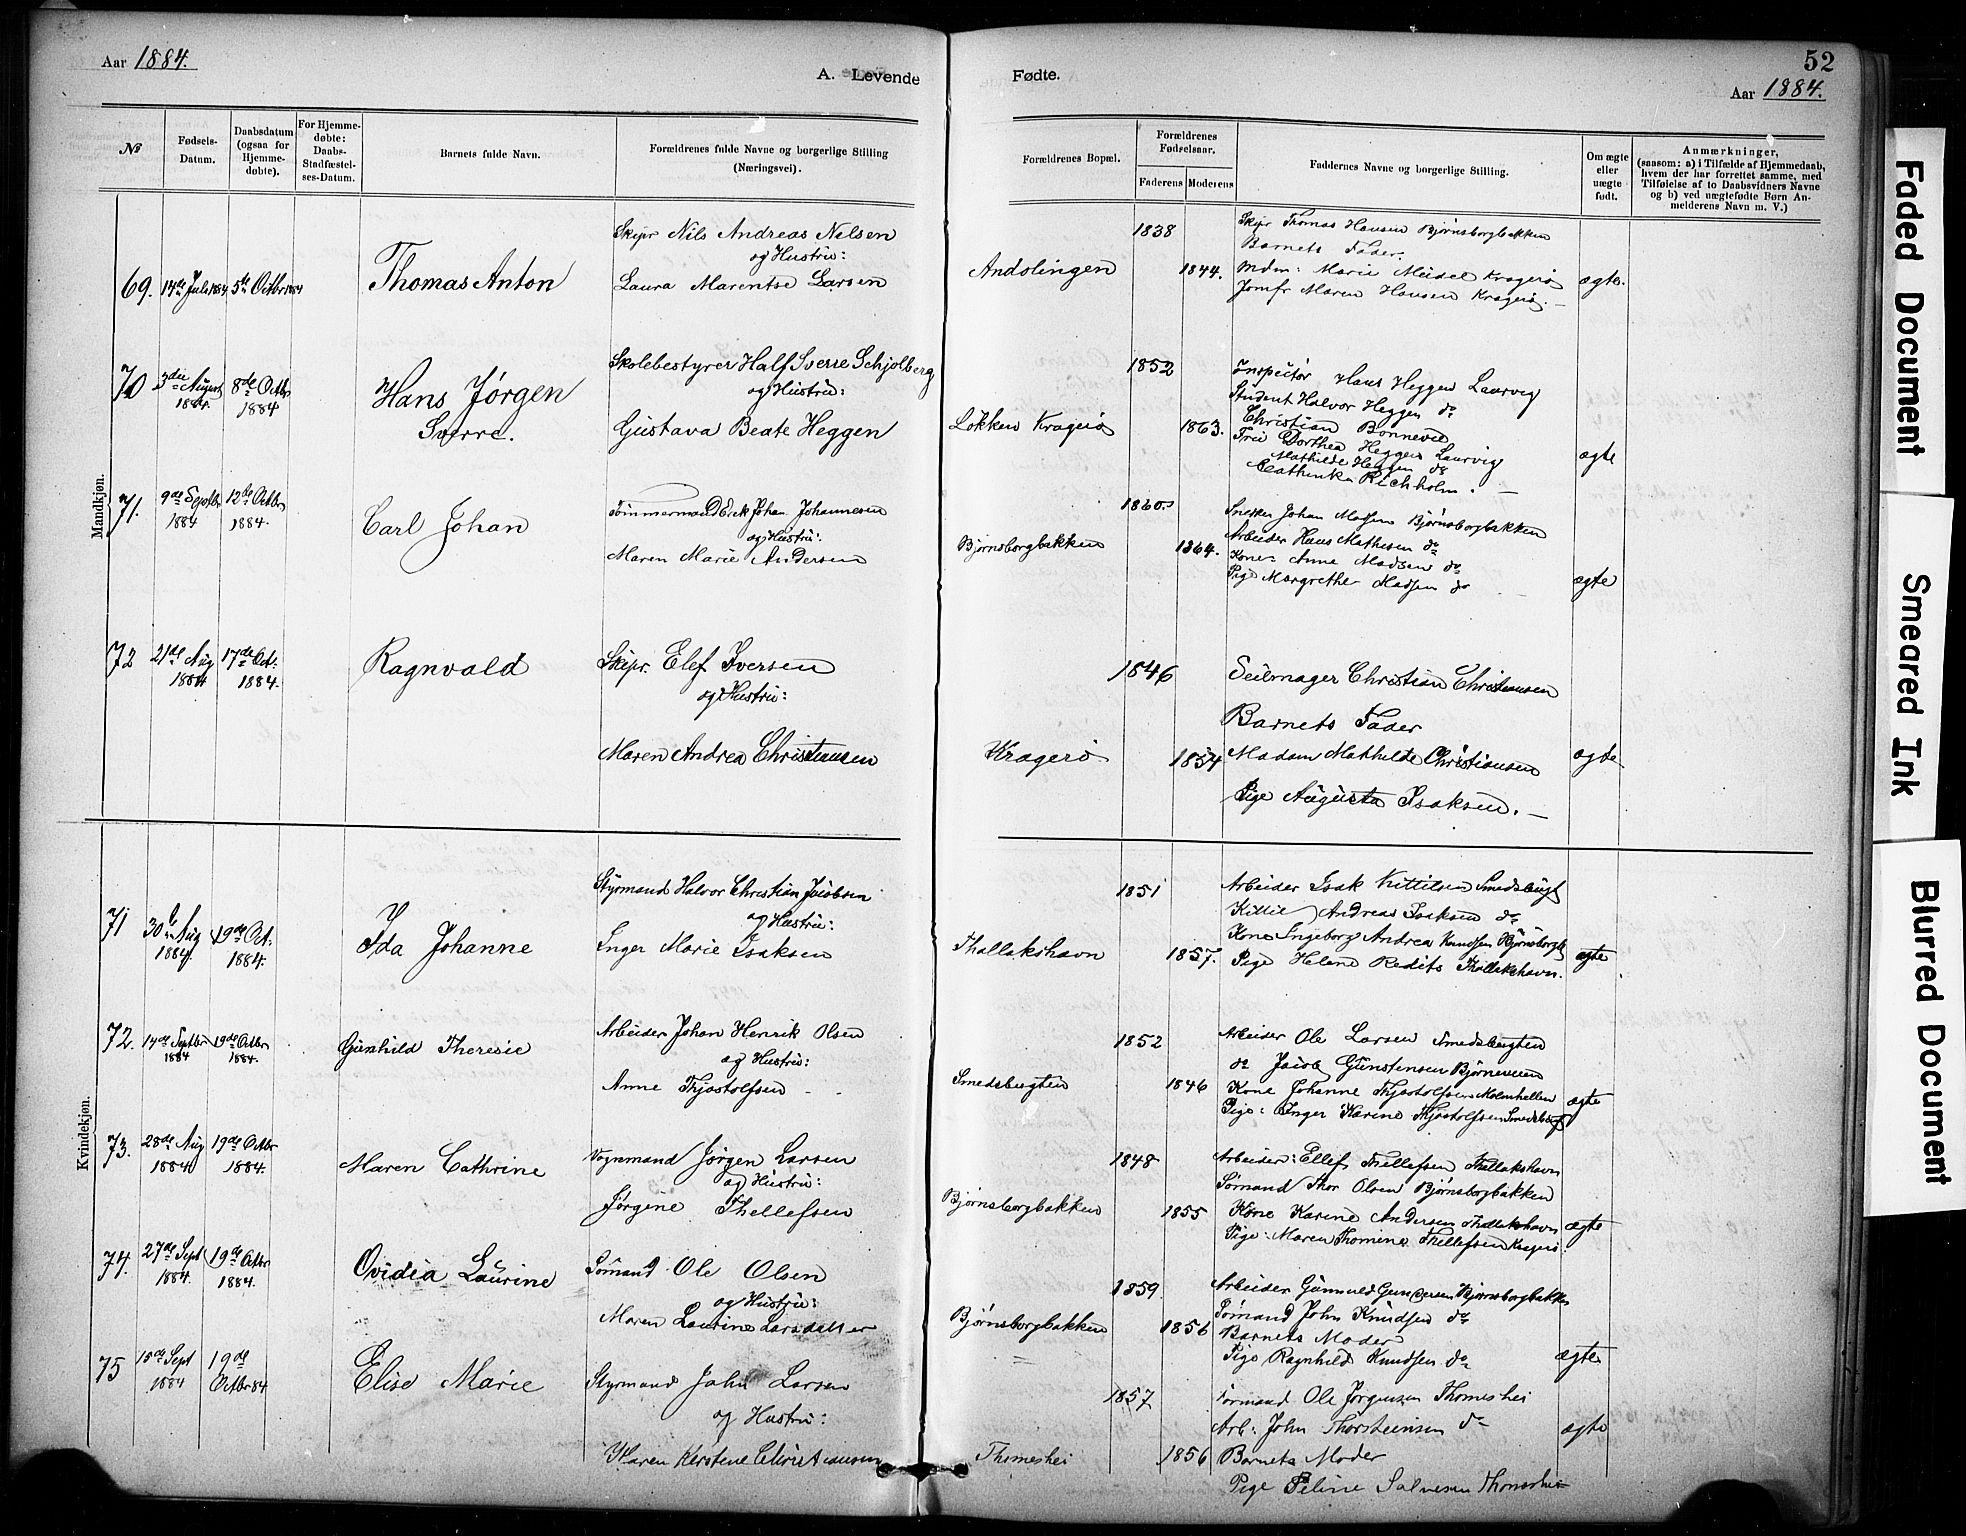 Aar 1884.
A. Levende Fødte.
52
Aar 1884.
No
Fødsels-Datum.
Daabsdatum (ogsaa for Hjemme-døbte).
For Hjemme-døbte: Daabs-Stadfæstel-ses-Datum.
Barnets fulde Navn.
Forældrenes fulde Navne og borgerlige Stilling (Næringsvei).
Forældrenes Bopæl.
Forældrenes Fødselsaar.
Faderens
Moderens
Faddernes Navne og borgerlige Stilling.
Om ægte eller uægte født.
Anmærkninger, (saasom: a) i Tilfælde af Hjemmedaab, hvem der har forrettet samme, med Tilføielse af to Daabsvidners Navne og b) ved uægtefødte Børn An-melderens Navn m. V.)
Mandkjøn.
69. 14de Juli 1884 5te Octbr 1884 Thomas Anton
Skipr Nils Andreas Nelsen
og Hustru:
Laura Marentse Larsen
Andolingen 1838 1844.
Skipr Thomas Hansen Bjørnsborgbakken
Barnets Fader.
Mdm: Marie Meidel Kragerø
Jomfr Maren Hansen Kragerø.
ægte.
70 3die August 1884. 8de Octbr 1884
Hans Jørgen
Sverre.
Skolebestyrer Half Sverre Schjolberg
og Hustru:
Gustava Beate Heggen
Løkken Kragerø 1852 1863.
Inspectør Hans Heggen Laurvig
Student Halvor Heggen do
Christian Bonnevie
Dorthea Heggen Laurvig
Mathilde Heggen do
Cathinka Richholm.
ægte
71. 9de Septbr 1884 12te Octbr 1884.
Carl Johan
Tømmermand Erik Johan Johannesen
og Hustru:
Maren Marie Andersen
Bjørnsborgbakken 1860 1864.
Snedker Johan Madsen Bjørnsborgbakken
Arbeider Hans Mathisen do
Kone Anne Madsen do
Pige Margrethe Madsen do
ægte
72 21de Aug 1884 17de Oct. 1884.
Ragnvald
Skipr. Elef Iversen
og Hustru:
Maren Andrea Christiansen
Kragerø 1846 1854
Seilmager Christian Christiansen
Barnets Fader
Madam Mathilde Christiansen
Pige Augusta Isaksen.
ægte
Kvindekjøn.
71 30te Aug 1884. 19de Oct. 1884.
Ida Johanne
Styrmand Halvor Christian Jacobsen
og Hustru:
Inger Marie Isaksen
Thallakshavn 1851 1857.
Arbeider Isak Kittilsen Smedsbugt
Kittil Andreas Isaksen do
Kone Ingeborg Andrea Knudsen Bjørnsborgb
Pige Helene Thallakshavn.
ægte
72. 14de Septbr 1884 19de Octbr 1884.
Gunhild Theresie
Arbeider Johan Henrik Olsen
og Hustru:
Anne Thjostolfsen
Smedsbugten 1852 1846
Arbeider Ole Larsen Smedsbugten
do Jacob Gunstensen
Kone Johanne Thjostolfsen Holmhellen
Pige: Inger Karine Thjostolfsen Smedsbug
ægte
73. 28de Aug 1884 19de Octbr 1884.
Maren Cathrine
Vognmand Jørgen Larsen
og Hustru:
Jørgine Thellefsen
Bjørnsborgbakken 1848 1855
Arbeider: Ellef Thellefsen Thallakshavn
Sømand Thor Olsen Bjørnsborgbakken
Kone Karine Andersen Thallakshavn
Pige: Maren Thomine Thellefsen Kragerø
ægte
74. 27de Sept 1884. 19de Octbr 1884.
Ovidia Laurine
Sømand Ole Olsen
og Hustru:
Maren Laurine Larsdatter
Bjørnsborgbakken 1859 1856
Arbeider Gunnuld Gundersen Bjørnsborgbakken
Sømand John Knudsen do
Barnets Moder
Pige Ragnhild Knudsen do
ægte
75 15de Sept 1884 19de Octbr 84
Elise Marie
Styrmand John Larsen
og Hustru:
Maren Kerstene Christiansen
Thomeshei 1857 1856
Formand Ole Jørgensen Thomeshei
Arb: John Thorsteinsen do
Barnets Moder
Pige Peline Salvesen Thomeshei
ægte
Faded Document
Smeared Ink
Blurred Document